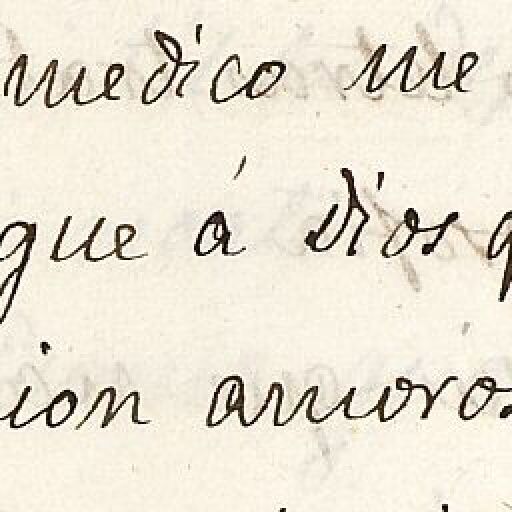 medico me
gue á Dios q
ion amoros